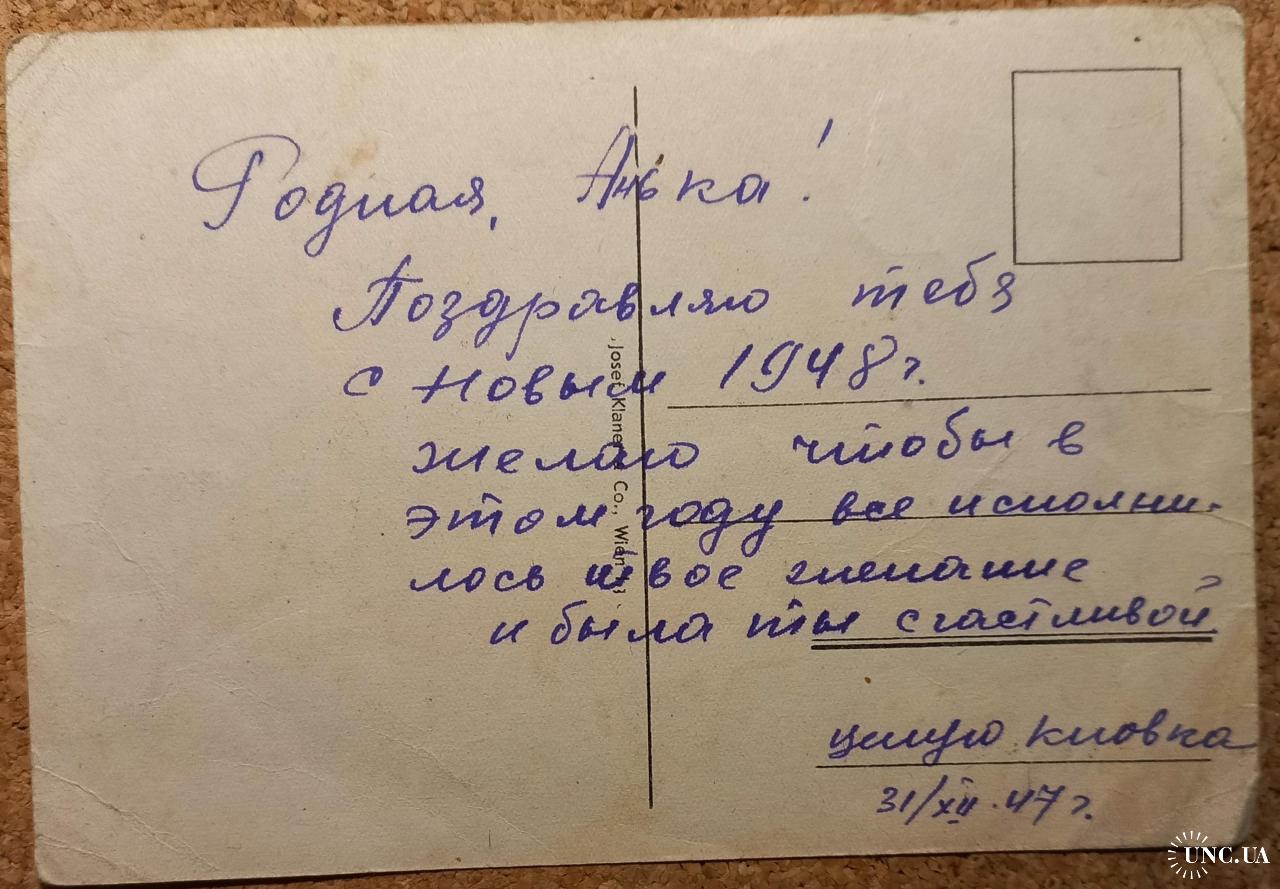 Родная, Анька!
Поздравляю тебя
с новым 1948 г.
желаю чтобы в
этом году все исполни-
лось твое желание
и была ты счастливой
целую
31/XII.47 г.
Josef Klaner & Co., Wien
UNC.UA